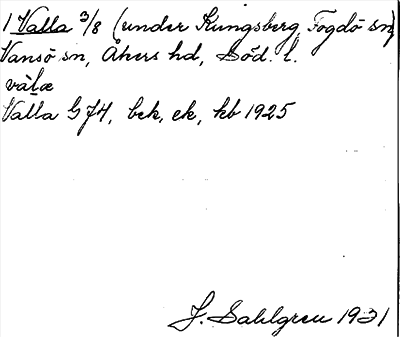 1 Valla 3/8 (under Kungsberg, Fogdö sn)
Vansö sn, Åkers hd, Söd. l.
vàlæ
Valla GJ4, bek, ek, kb 1925
J. Sahlgren 1931